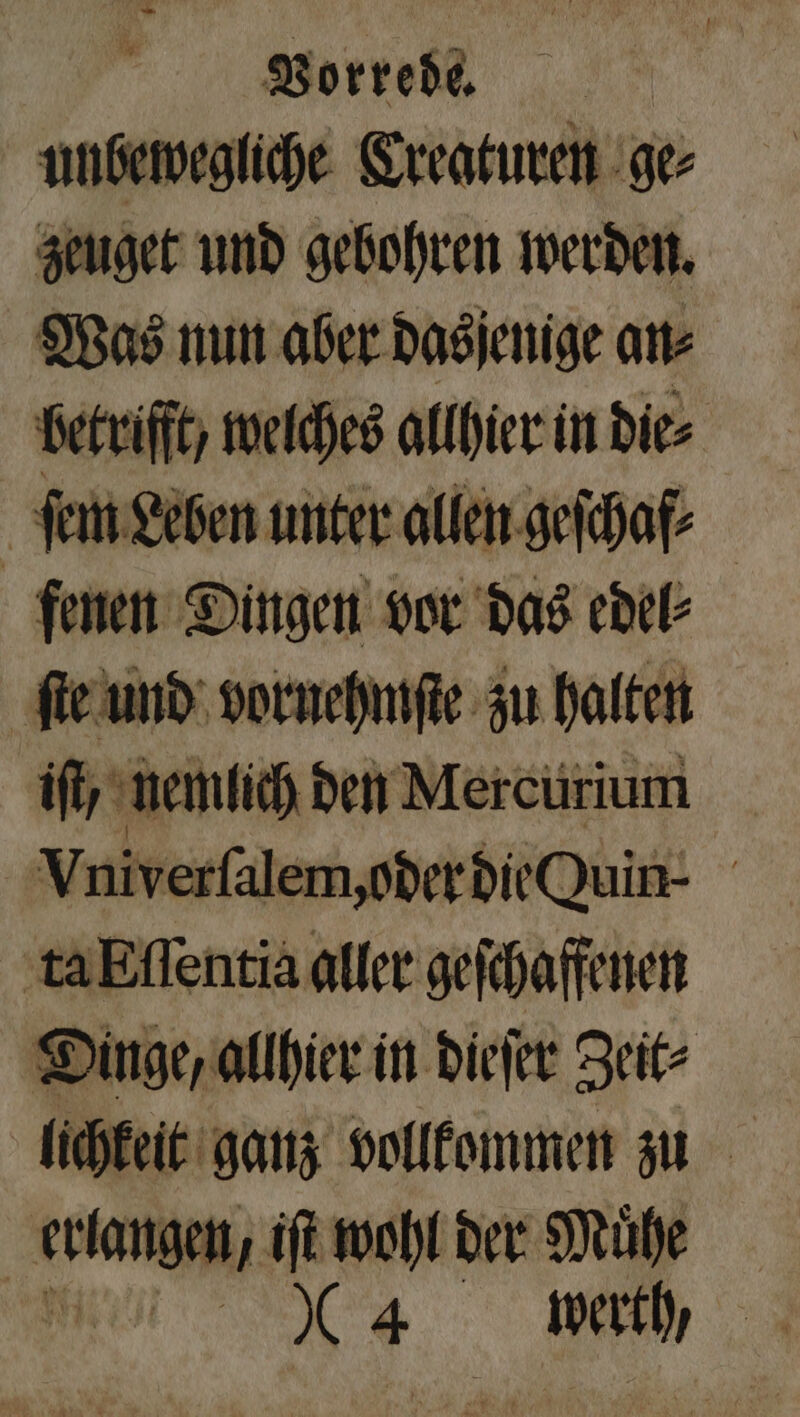 Vorrede.
unbewegliche Creaturen ge⸗
zeuget und gebohren werden.
Was nun aber dasjenige an⸗
betrifft, welches allhier in die⸗
ſem Leben unter allen geſchaf⸗
fenen Dingen vor das edel⸗
ſte und vornehmſte zu halten
iſt, nemlich den Mercurium
Vniverſalem, oder die Quin-
ta Eſſentia aller geſchaffenen
Dinge, allhier in dieſer Zeit⸗
lichkeit ganz vollkommen zu
erlangen, iſt wohl der Muͤhe
)( 4 werth,